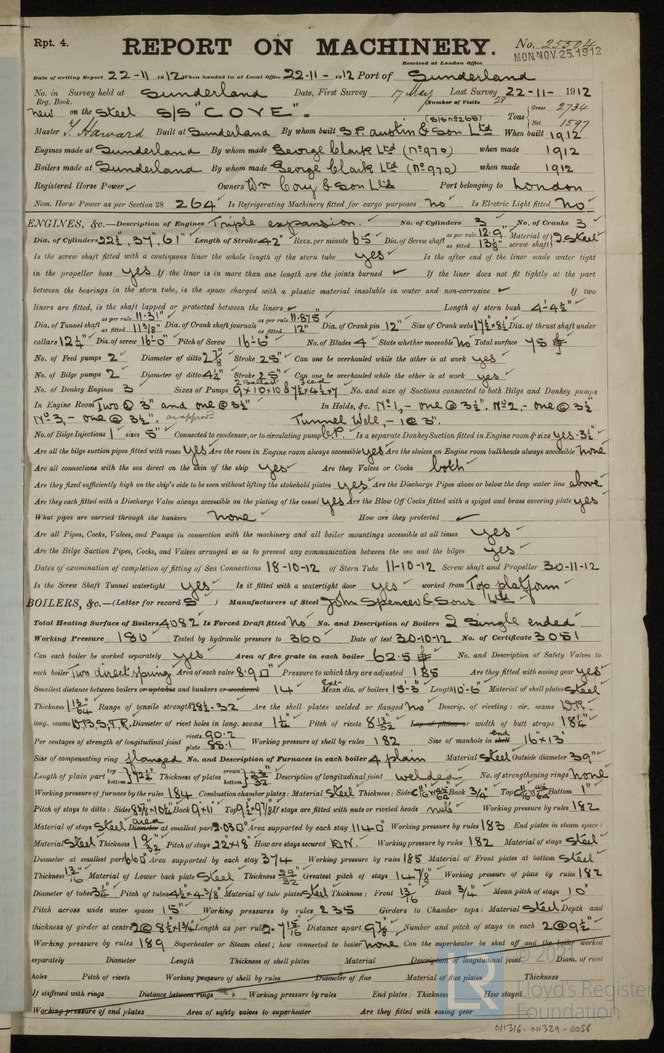 Rpt. 4. REPORT ON MACHINERY. No. 25304
Received at London Office MON. NOV. 25. 1912
Date of writing Report 22-11- 1912 When handed in at Local Office 22-11- 1912 Port of Sunderland
No. in Survey held at Sunderland Date, First Survey 17 May Last Survey 22-11- 1912
Reg. Book. (Number of Visits 28
new on the Steel S/S "COVE". (S/S No 265) Tons Gross 2734 Net 1597
Master T. Harward Built at Sunderland By whom built S.P. Austin & Son Ltd When built 1912
Engines made at Sunderland By whom made George Clark Ltd (No 970) when made 1912
Boilers made at Sunderland By whom made George Clark Ltd (No 970) when made 1912
Registered Horse Power Owners Wm Cory & Son Ltd Port belonging to London
Nom. Horse Power as per Section 28 264 Is Refrigerating Machinery fitted for cargo purposes No Is Electric Light fitted No
ENGINES, &c.—Description of Engines Triple expansion. No. of Cylinders 3 No. of Cranks 3
Dia. of Cylinders 22½, 37, 61" Length of Stroke 42" Revs. per minute 65 Dia. of Screw shaft as per rule 12.9 as fitted 13⅛" Material of screw shaft Steel
Is the screw shaft fitted with a continuous liner the whole length of the stern tube yes Is the after end of the liner made water tight
in the propeller boss yes If the liner is in more than one length are the joints burned ✓ If the liner does not fit tightly at the part
between the bearings in the stern tube, is the space charged with a plastic material insoluble in water and non-corrosive ✓ If two
liners are fitted, is the shaft lapped or protected between the liners ✓ Length of stern bush 4'-4½"
Dia. of Tunnel shaft as per rule 11.31" as fitted 11⅜" Dia. of Crank shaft journals as per rule 11.875" as fitted 12" Dia. of Crank pin 12" Size of Crank webs 17½ x 8½ Dia. of thrust shaft under
collars 12¼" Dia. of screw 16'-0" Pitch of Screw 16'-6" No. of Blades 4 State whether moveable No Total surface 75
No. of Feed pumps 2 Diameter of ditto 2⅞" Stroke 25" Can one be overhauled while the other is at work yes
No. of Bilge pumps 2 Diameter of ditto 4¼" Stroke 25" Can one be overhauled while the other is at work yes
No. of Donkey Engines 3 Sizes of Pumps 2 Ballast 9 x 10 x 10 & 7½ x 4½ x 7 No. and size of Suctions connected to both Bilge and Donkey pumps
In Engine Room Two @ 3" and one @ 3½" In Holds, &c. No 1, - one @ 3½". No 2, - one @ 3½
No 3, - one @ 3½". as approved Tunnel Well, - 1 @ 3".
No. of Bilge Injections 1 sizes 5" Connected to condenser, or to circulating pump C.P. Is a separate Donkey Suction fitted in Engine room & size yes. 3½"
Are all the bilge suction pipes fitted with roses yes Are the roses in Engine room always accessible yes Are the sluices on Engine room bulkheads always accessible None
Are all connections with the sea direct on the skin of the ship yes Are they Valves or Cocks both
Are they fixed sufficiently high on the ship's side to be seen without lifting the stokehold plates yes Are the Discharge Pipes above or below the deep water line above
Are they each fitted with a Discharge Valve always accessible on the plating of the vessel yes Are the Blow Off Cocks fitted with a spigot and brass covering plate yes
What pipes are carried through the bunkers none How are they protected ✓
Are all Pipes, Cocks, Valves, and Pumps in connection with the machinery and all boiler mountings accessible at all times yes
Are the Bilge Suction Pipes, Cocks, and Valves arranged so as to prevent any communication between the sea and the bilges yes
Dates of examination of completion of fitting of Sea Connections 18-10-12 of Stern Tube 11-10-12 Screw shaft and Propeller 30-11-12
Is the Screw Shaft Tunnel watertight yes Is it fitted with a watertight door yes worked from Top platform
BOILERS, &c.—(Letter for record S) Manufacturers of Steel John Spencer & Sons Ltd
Total Heating Surface of Boilers 4082 Is Forced Draft fitted No No. and Description of Boilers 2 Single ended
Working Pressure 180 Tested by hydraulic pressure to 360 Date of test 30-10-12 No. of Certificate 3051
Can each boiler be worked separately yes Area of fire grate in each boiler 62.5 No. and Description of Safety Valves to
each boiler Two direct spring Area of each valve 8.9 Pressure to which they are adjusted 185 Are they fitted with easing gear yes
Smallest distance between boilers or uptakes and bunkers or woodwork 14" Mean dia. of boilers 15'-3" Length 10'-6 Material of shell plates Steel
Thickness 1 13/64 Range of tensile strength 28½-32 Are the shell plates welded or flanged No Descrip. of riveting: cir. seams D.R.
long. seams D.B.S.T.R. Diameter of rivet holes in long. seams 1¼" Pitch of rivets 8 13/32 Lap of plates or width of butt straps 18¼"
Per centages of strength of longitudinal joint rivets 90.2 plate 85.1 Working pressure of shell by rules 182 Size of manhole in end 16" x 13"
Size of compensating ring flanged No. and Description of Furnaces in each boiler 4 plain Material Steel Outside diameter 39"
Length of plain part top bottom Thickness of plates crown bottom Description of longitudinal joint welded No. of strengthening rings none
Working pressure of furnace by the rules 184 Combustion chamber plates: Material Steel Thickness: Sides Back ¾" Top Bottom 1"
Pitch of stays to ditto: Sides Back 9 x 11" Top If stays are fitted with nuts or riveted heads nuts Working pressure by rules 182
Material of stays Steel area Diameter at smallest part 2.03 Area supported by each stay 114 Working pressure by rules 183 End plates in steam space:
Material Steel Thickness 1 9/32 Pitch of stays 22 x 18" How are stays secured D.N. Working pressure by rules 182 Material of stays Steel
Diameter at smallest part Area supported by each stay 374 Working pressure by rules 185 Material of Front plates at bottom Steel
Thickness 13/16 Material of Lower back plate Steel Thickness 29/32 Greatest pitch of stays 14⅞" Working pressure of plate by rules 182
Diameter of tubes 3¼" Pitch of tubes 4½ x 4⅜" Material of tube plates Steel Thickness: Front 13/16 Back ¾" Mean pitch of stays 10"
Pitch across wide water spaces 15" Working pressures by rules 235 Girders to Chamber tops: Material Steel Depth and
thickness of girder at centre 2 @ 8½ x 1¾" Length as per rule 2-7 15/16 Distance apart 9⅞" Number and pitch of stays in each 2 @ 9½"
Working pressure by rules 189 Superheater or Steam chest; how connected to boiler none Can the superheater be shut off and the boiler worked
separately Diameter Length Thickness of shell plates Material Description of longitudinal joint Diam. of rivet
holes Pitch of rivets Working pressure of shell by rules Diameter of flue Material of flue plates Thickness
If stiffened with rings Distance between rings Working pressure by rules End plates: Thickness How stayed
Working pressure of end plates Area of safety valves to superheater Are they fitted with easing gear
© 2021
LR Lloyd's Register
Foundation
011316-011329-0058